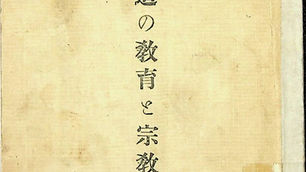 の教育と宗教